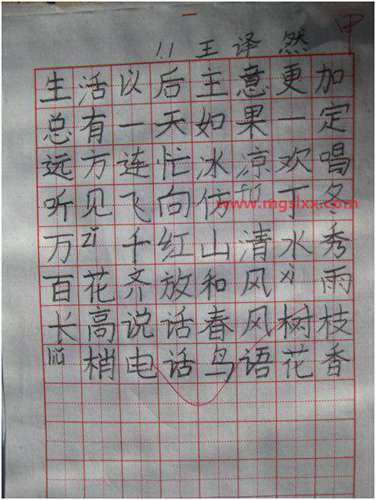 1.1 王译然
中
生活以后主意更加
总有一天如果一定
远方连忙冰凉欢唱
听见飞向仿丁冬
www.mgslxx.com
万zǐ千红山清水秀
百花齐放和风xì雨
长高说话春风树枝
梢电话鸟语花香